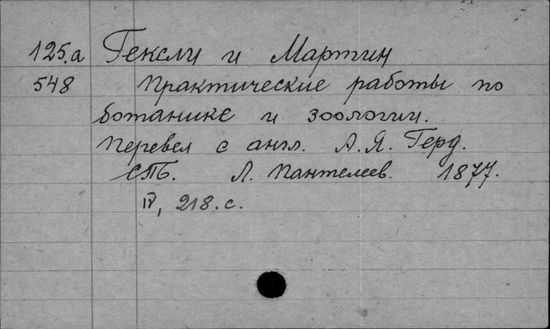 125.а Гексли и Мартин
548 Практические работы по
ботанике и зоологии.
Перевел с англ. А.Я. Герд.
СПБ. Л. Пантелеев. 1877.
IV, 218.с.